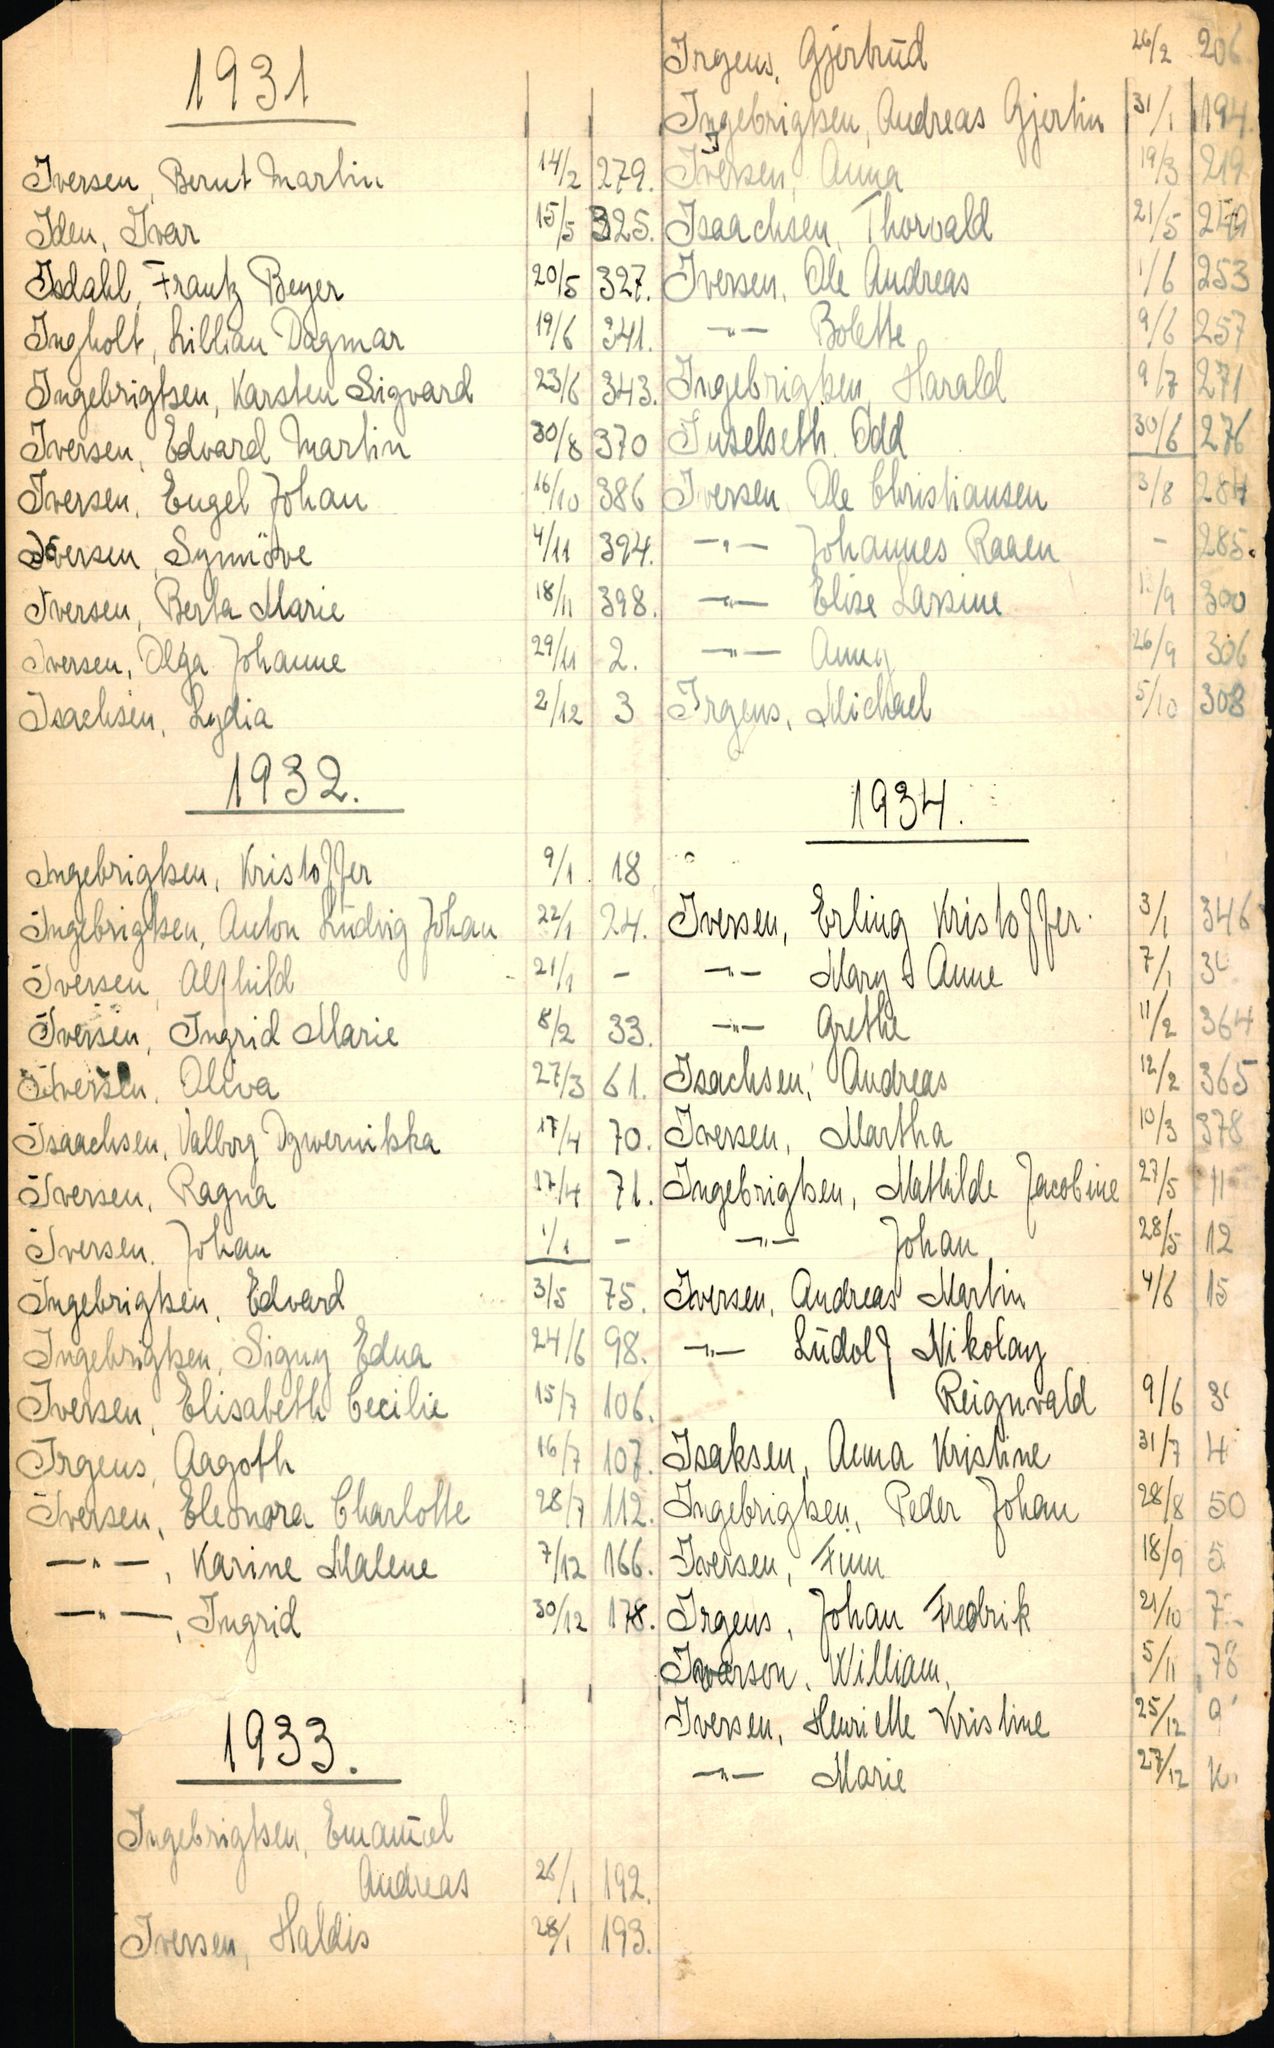 1931
Iversen, Bernt Martin 14/2 279.
Iden, Ivar 15/5 325.
Isdahl, Frantz Beyer 20/5 327.
Ingholt, Lillian Dagmar 19/6 341.
Ingebrigtsen, Karsten Sigvard 23/6 343.
Iversen, Edvard Martin 30/8 370
Iversen, Engel Johan 16/10 386
Iversen, Synnöve 4/11 394.
Iversen, Berta Marie 18/11 398.
Iversen, Olga Johanne 29/11 2.
Isachsen, Lydia 2/12 3
1932.
Ingebrigtsen, Kristoffer 9/1 18
Ingebrigtsen, Anton Ludvig Johan 22/1 24.
Iversen, Alfhild 21/1 -
Iversen, Ingrid Marie 8/2 33.
Iversen, Oliva 27/3 61.
Isaachsen, Valborg 17/4 70.
Iversen, Ragna 17/4 71.
Iversen, Johan 1/1 -
Ingebrigtsen, Edvard 3/5 75.
Ingebrigtsen, Signy Edna 24/6 98.
Iversen, Elisabeth Cecilie 15/7 106.
Irgens, Aagoth 16/7 107.
Iversen, Eleonora Charlotte 28/7 112.
—"—, Karine Malene 7/12 166.
—"—, Ingrid 30/12 178.
1933.
Ingebrigtsen, Emanuel
Andreas 26/1 192.
Iversen, Haldis 28/1 193.
Irgens, Gjertrud 26/2 206.
Ingebrigtsen, Andreas Gjertin 31/1 194.
Iversen, Anna 19/3 219
Isaachsen, Thorvald 21/5 249
Iversen, Ole Andreas 1/6 253
—"— Bolette 9/6 257
Ingebrigtsen, Harald 9/7 271
Inselseth, Odd 30/6 276
Iversen, Ole Christiansen 3/8 284
—"— Johannes Raaen - 285.
—"— Elise Lassine /9 300
—"— Anny 26/9 306
Irgens, Michael 5/10 308
1934.
Iversen, Erling Kristoffer. 3/1 346
—"— Mary Anne 7/1
—"— Grethe 11/2 364
Isachsen, Andreas 12/2 365
Iversen, Martha 10/3 378
Ingebrigtsen, Mathilde Jacobine 27/5 11
—"— Johan 28/5 12
Iversen, Andreas Martin 4/6 15
—"— Ludolf Nikolay
Reignvald 9/6
Isaksen, Anna Kristine 31/7 4
Ingebrigtsen, Peder Johan 28/8 50
Iversen, Finn 18/9 5
Irgens, Johan Fredrik 21/10 7
Iwarson, William, 5/11 78
Iversen, Henriette Kristine 25/12 9
—"— Marie 27/12